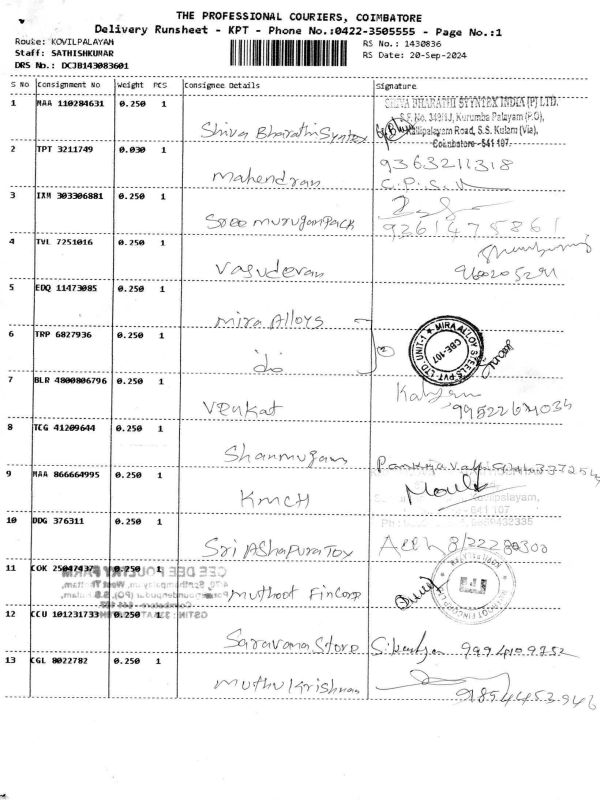 THE PROFESSIONAL COURIERS, COIMBATORE
Delivery Runsheet - KPT - Phone No.:0422-3505555 - Page No.:1
Route: KOVILPALAYAM
Staff: SATHISHKUMAR
DRS No.: DCJB143083601
RS No.: 1430836
RS Date: 20-Sep-2024
S No Consignment No Weight PCS Consignee Details Signature
1 MAA 110284631 0.250 1 Shiva Bharathi Syntex
SHIVA BHARATHI SYYNTEX INDIA (P) LTD.
S.F. No. 349/1J, Kurumba Palayam (P.O),
Kallipalayam Road, S.S. Kulam (Via),
Coimbatore - 641 107.
2 TPT 3211749 0.030 1 Mahendran
9363211318
3 IXM 303306881 0.250 1 Sree Murugan Pack
9261475861
4 TVL 7251016 0.250 1 Vasudevan
5 EDQ 11473085 0.250 1 Mira Alloys
6 TRP 6827936 0.250 1 do
MIRA ALLOY STEELS PVT. LTD. UNIT-1
CBE-107
7 BLR 4800806796 0.250 1 Venkat
Kalyan
8 TCG 41209644 0.250 1 Shanmugam
9 MAA 866664995 0.250 1 KMCH
10 DDG 376311 0.250 1 Sri AShapura Tex
11 COK 25047437 0.250 1 Muthoot Fincorp
CEE DEE POULTRY FARM
12 CCU 101231733 0.250 1 Saravana Store
9994109752
13 CGL 8022782 0.250 1 Muthu Krishnan